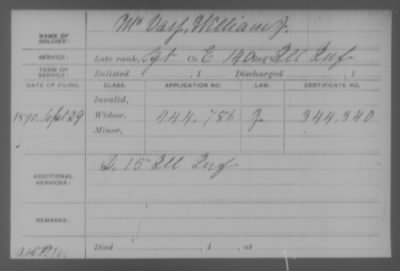 NAME OF SOLDIER: Mc Daff, William J.
SERVICE: Late rank, Sgt Co. E, 140 Ill Inf
TERM OF SERVICE: Enlisted , 1 Discharged , 1
DATE OF FILING. CLASS. APPLICATION NO. LAW. CERTIFICATE NO.
Invalid,
1890. Sept 29 Widow, 444.786 344.340
Minor,
ADDITIONAL SERVICES: 15 Ill Inf
REMARKS:
Died , 1 , at